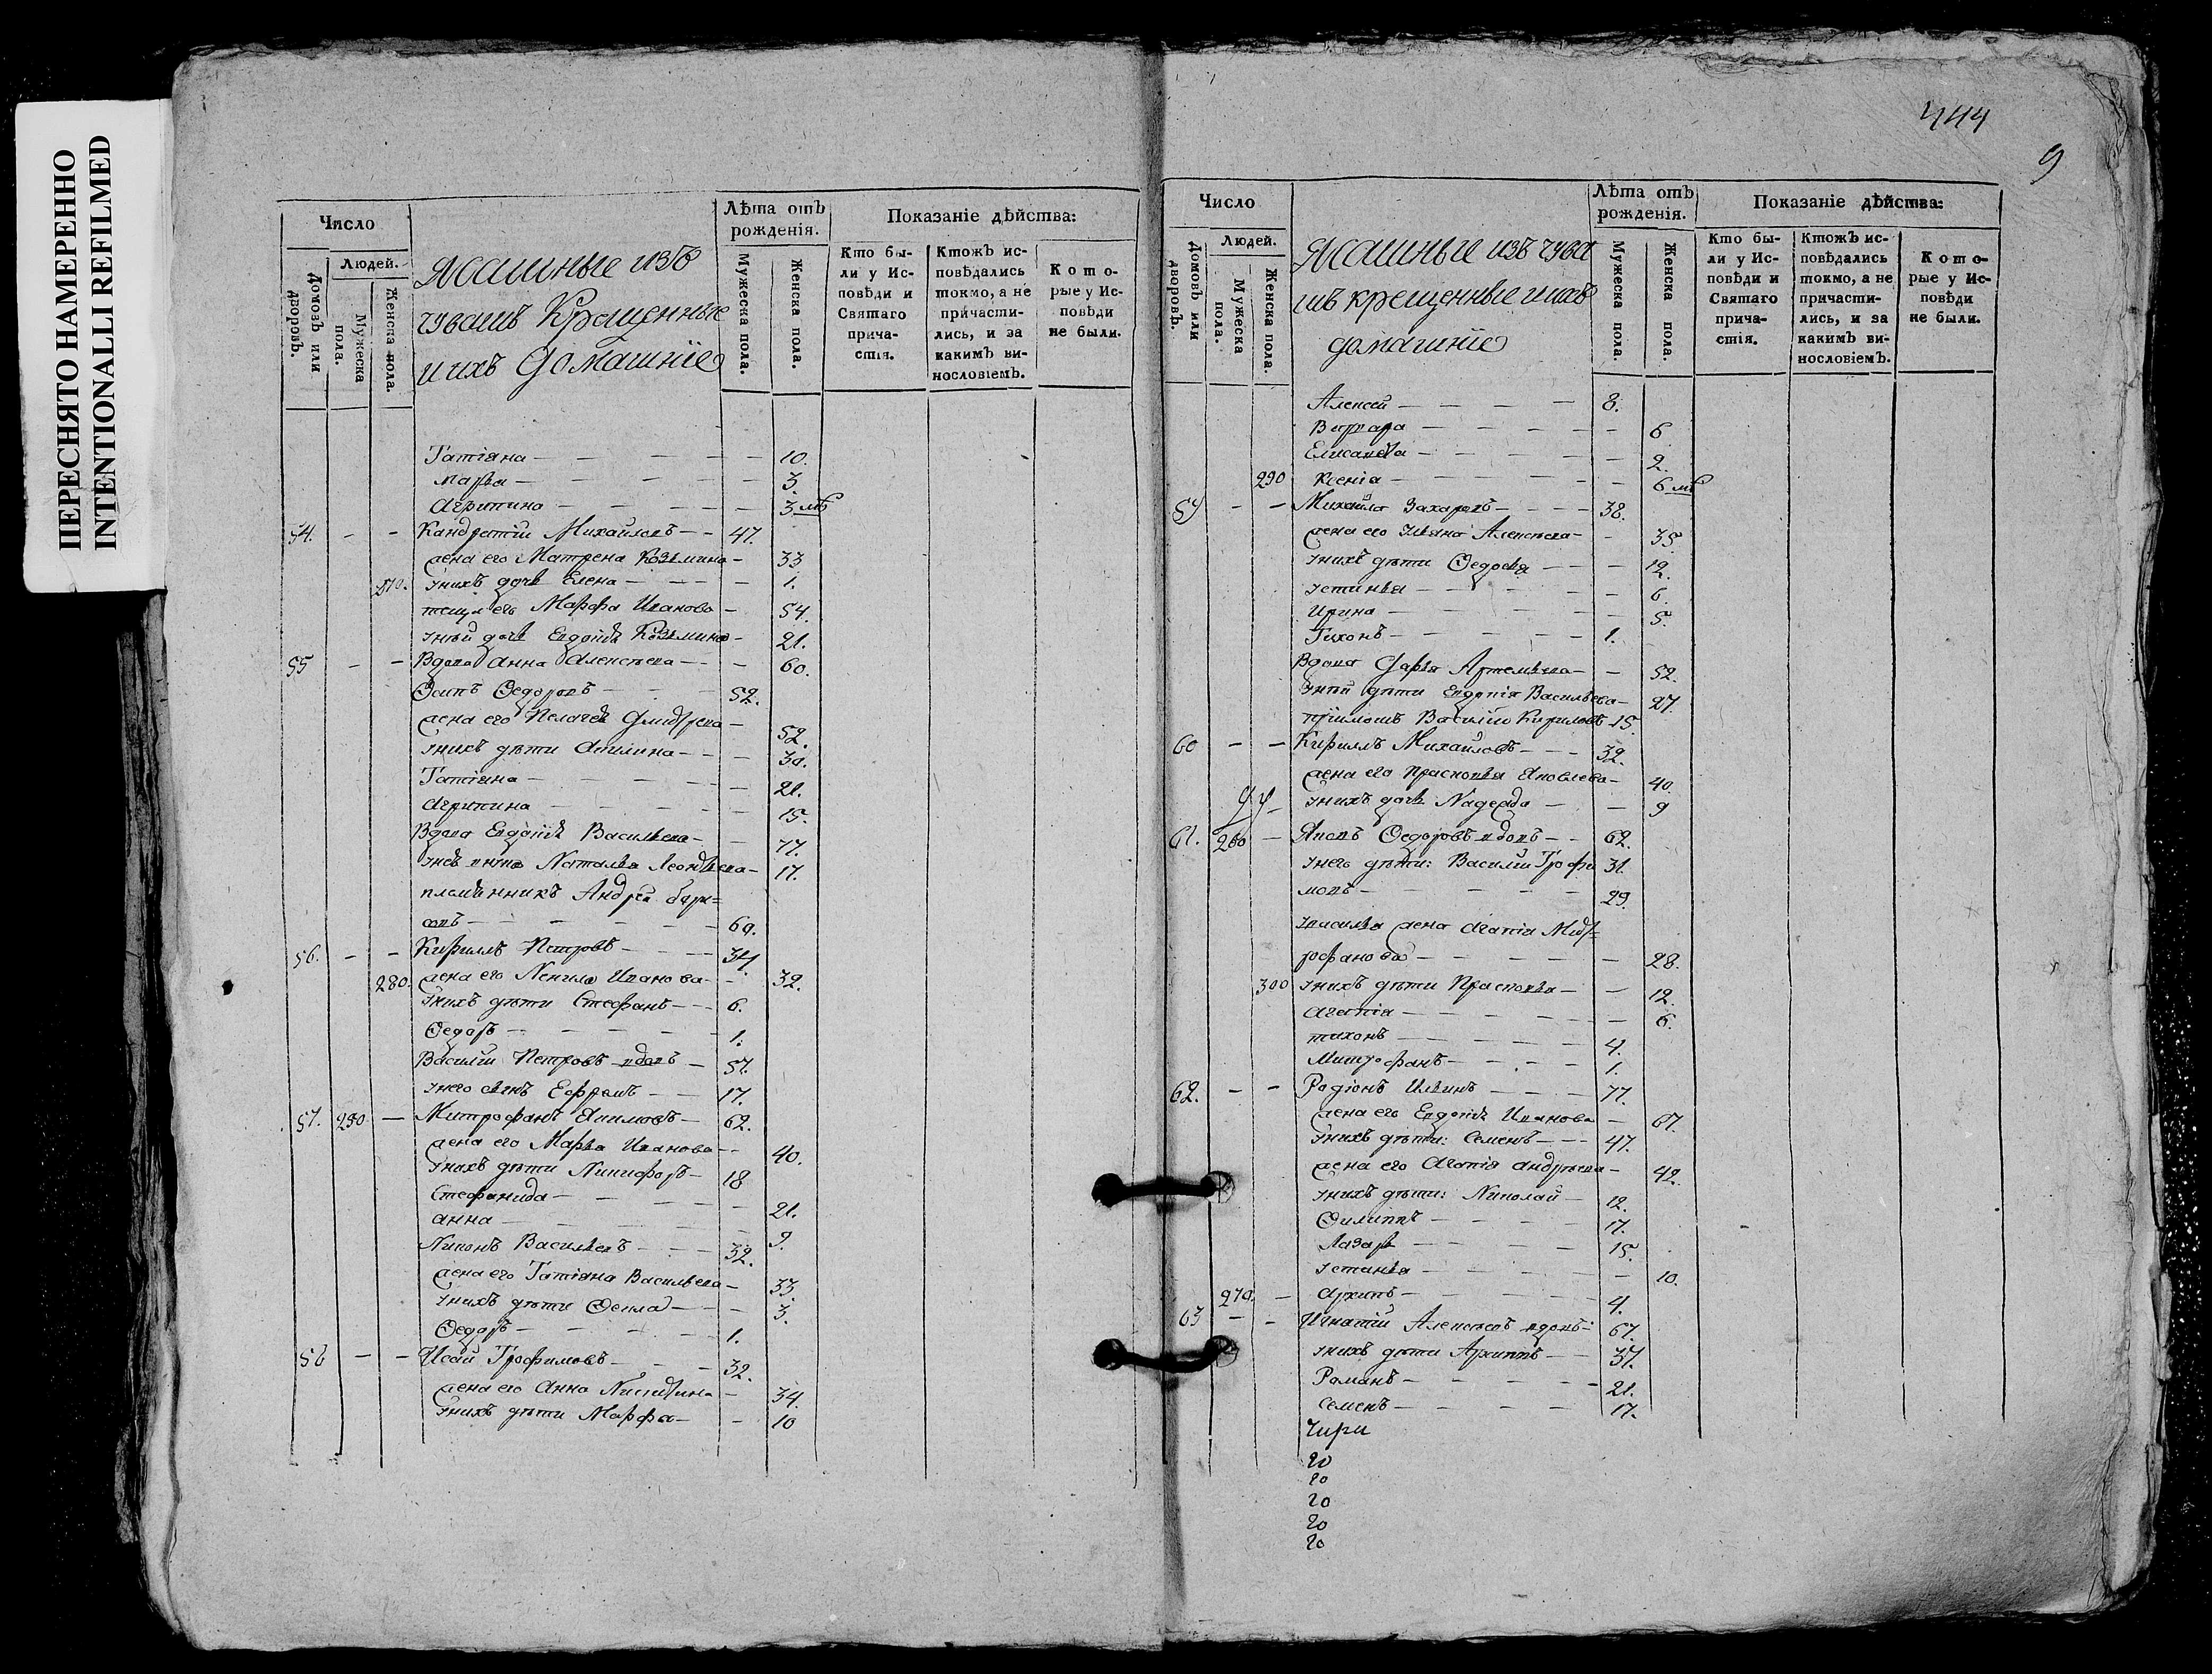 ПЕРЕСНЯТО НАМЕРЕННО
INTENTIONALLI REFILMED
Число
Людей.
Домовъ или дворовъ.
Мужеска пола.
Женска пола.
Ясашные изъ
чувашъ Крещенные
и ихъ Домашніе
Лѣта отъ рожденія.
Мужеска пола.
Женска пола.
Показаніе дѣйства:
Кто бы-
ли у Ис-
повѣди и
Святаго
прича-
стія.
Ктожъ ис-
повѣдались
токмо, а не
причасти-
лись, и за
какимъ ви-
нословіемъ.
Кото-
рые у Ис-
повѣди
не были.
Татіяна — 10.
Марья — 3.
Агрипина — 3 мѣ
54. - - Кандратій Михайловъ — 47.
жена его Матрена Козмина — 33
270. У нихъ дочь Елена — 1.
теща его Марфа Иванова — 54.
У ней дочь Евдокія Козмина — 21.
55 - - Вдова Анна Алексѣева — 60.
Осипъ Ѳедоровъ — 52.
жена его Пелагея Дмитрева — 52.
У нихъ дѣти Акилина — 30.
Татіяна — 21.
Агрипина — 15.
Вдова Евдокія Васильева — 77.
Наталья Леонтьева — 17.
племянникъ Андрей
овъ — 60.
56. - - Кирилъ Петровъ — 34.
280. жена его Ненила Иванова — 32.
У нихъ дѣти Стефанъ — 6.
Ѳедоръ — 1.
Василій Петровъ вдовъ — 57.
У него сынъ Ефремъ — 17.
57. 250. - Митрофанъ Якимовъ — 62.
жена его Марья Иванова — 40.
У нихъ дѣти Никифоръ — 18
Стефанида — 21.
Анна — 9.
Никонъ Васильевъ — 32.
жена его Татіяна Васильева — 33.
У нихъ дѣти Ѳекла — 3.
Ѳедоръ — 1.
58 - - Исай Трофимовъ — 32.
жена его Анна Никитина — 34.
У нихъ дѣти Марфа — 10
444
9
Число
Людей.
Домовъ или дворовъ.
Мужеска пола.
Женска пола.
Ясашные изъ чува
шъ крещенные и ихъ
домашніе
Лѣта отъ рожденія.
Мужеска пола.
Женска пола.
Показаніе дѣйства:
Кто бы-
ли у Ис-
повѣди и
Святаго
прича-
стія.
Ктожъ ис-
повѣдались
токмо, а не
причасти-
лись, и за
какимъ ви-
нословіемъ.
Кото-
рые у Ис-
повѣди
не были.
Алексей — 8.
Варвара — 6
Елисавета — 2.
290 Ксенія — 6 мѣ
59 - - Михайла Захаровъ — 38.
жена его Ульяна Алексѣева — 35.
У нихъ дѣти Ѳедосья — 12.
Устинья — 6.
Ирина — 5.
Тихонъ — 1.
Вдова Дарья Артемьева — 52.
У ней дѣти Евдокія Васильева — 27.
пріимышъ Василій Кириловъ 15.
60 - - Кирилъ Михайловъ — 32.
жена его Прасковья Яковлева — 40.
У нихъ дочь Надежда — 9
61. 260 - Яковъ Ѳедоровъ вдовъ — 62.
У него дѣти: Василій Трофи 31.
мовъ — 29.
У Василья жена Агапія Мит=
рофанова — 28.
300 У нихъ дѣти Прасковья — 12.
Агапія — 6.
тихонъ — 4.
Митрофанъ — 1.
62. - - Родіонъ Ильинъ — 77.
жена его Евдокія Иванова — 67.
У нихъ дѣти: Семенъ — 47.
жена его Агапія Андреева — 42.
У нихъ дѣти: Николай — 12.
Филиппъ — 17.
Лазарь — 15.
Устинья — 10.
270. - Архипъ — 4.
63 - - Игнатій Алексѣевъ вдовъ — 67.
У нихъ дѣти Архиппъ — 37.
Романъ — 21.
Семенъ — 17.
20
20
20
20
20